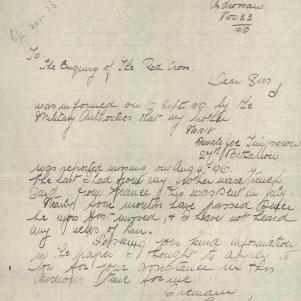 Nov 22
To
The Enquiry of The Red Cross.
Dear Sirs
I
was informed on 6 Sept 1916 by the
Military Authorities that my brother
Private Joe Simpson
27th Battalion
was reported missing on Aug 4th 1916.
The last I had from my brother was a french
Card from France & this was sent in July
Nearly four months have passed since
he was first missed, & I have not heard
any news of him.
Seeing your kind information
in the paper I thought to apply to
you for your assistance in this
anxious time for me
I remain